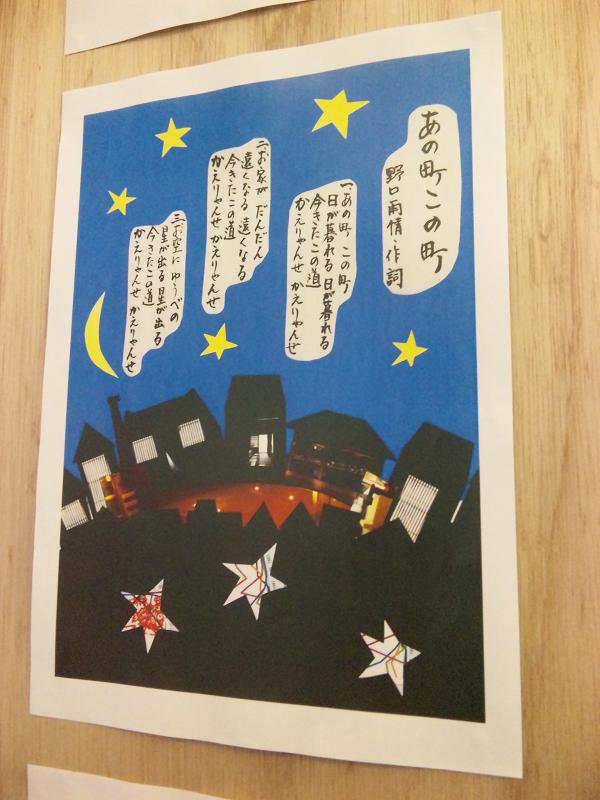 あの町この町
野口雨情・作詞
一、あの町 この町
日が暮れる 日が暮れる
今きたこの道
かえりゃんせ かえりゃんせ
二、お家が だんだん
遠くなる 遠くなる
今きたこの道
かえりゃんせ かえりゃんせ
三、お空に ゆうべの
星が出る 星が出る
今きたこの道
かえりゃんせ かえりゃんせ